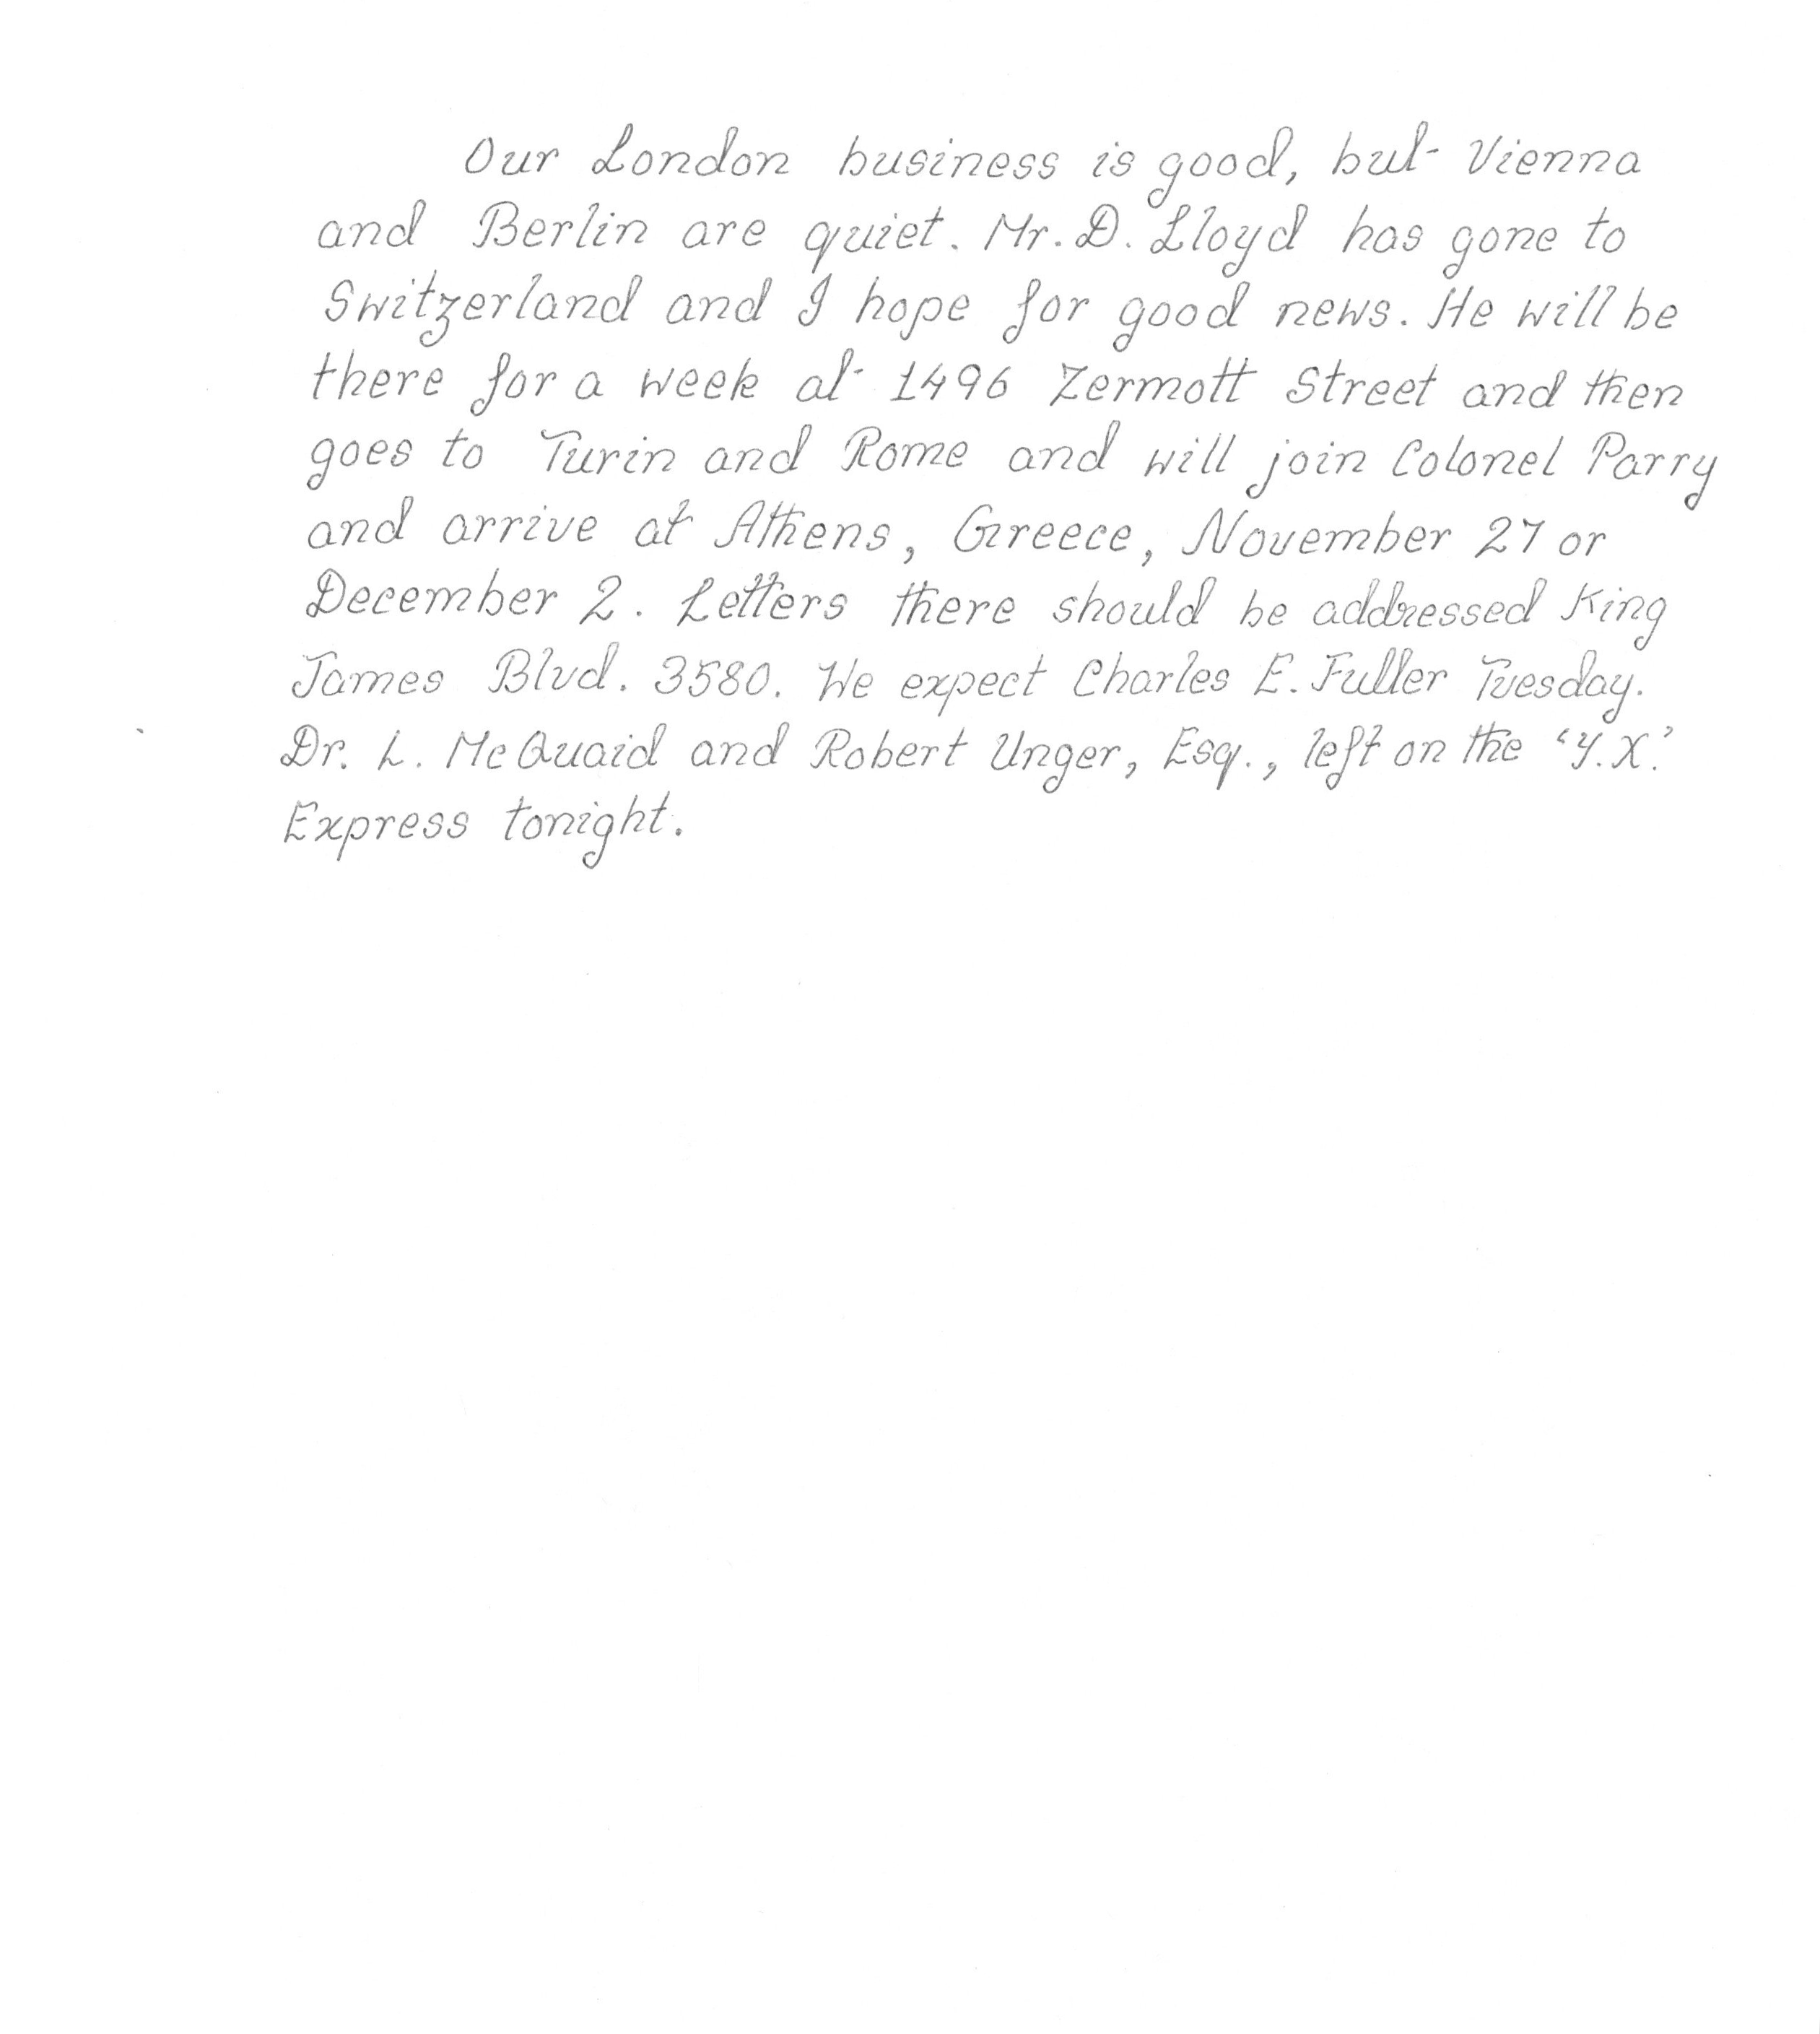 Our London business is good, but Vienna
and Berlin are quiet. Mr. D. Lloyd has gone to
Switzerland and I hope for good news. He will be
there for a week at 1496 Zermott Street and then
goes to Turin and Rome and will join Colonel Parry
and arrive at Athens, Greece, November 27 or
December 2. Letters there should be addressed King
James Blvd. 3580. We expect Charles E. Fuller Tuesday.
Dr. L. McQuaid and Robert Unger, Esq., left on the 'Y.X.'
Express tonight.